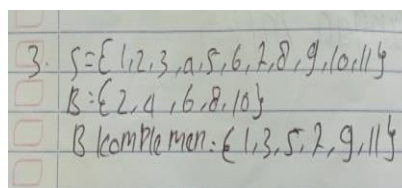 3. S={1,2,3,4,5,6,7,8,9,10,11}
B={2,4,6,8,10}
B komplemen={1,3,5,7,9,11}